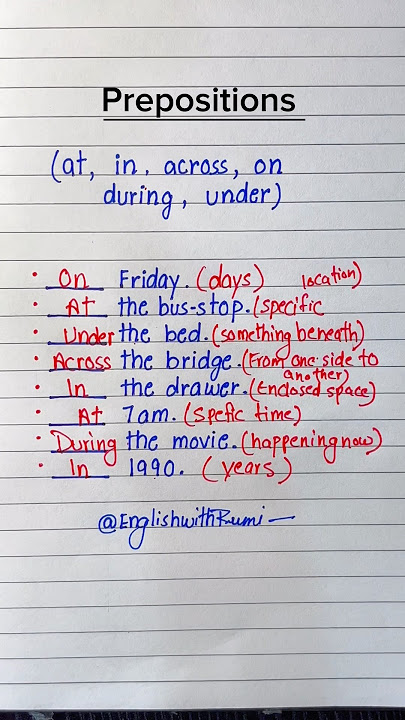 Prepositions
(at, in, across, on
during, under)
· On Friday. (days) location)
· At the bus-stop. (specific
· Under the bed. (something beneath)
· Across the bridge. (From one side to
another)
· In the drawer. (Enclosed space)
· At 7am. (Spefic time)
· During the movie. (happening now)
· In 1990. (years)
@EnglishwithRumi